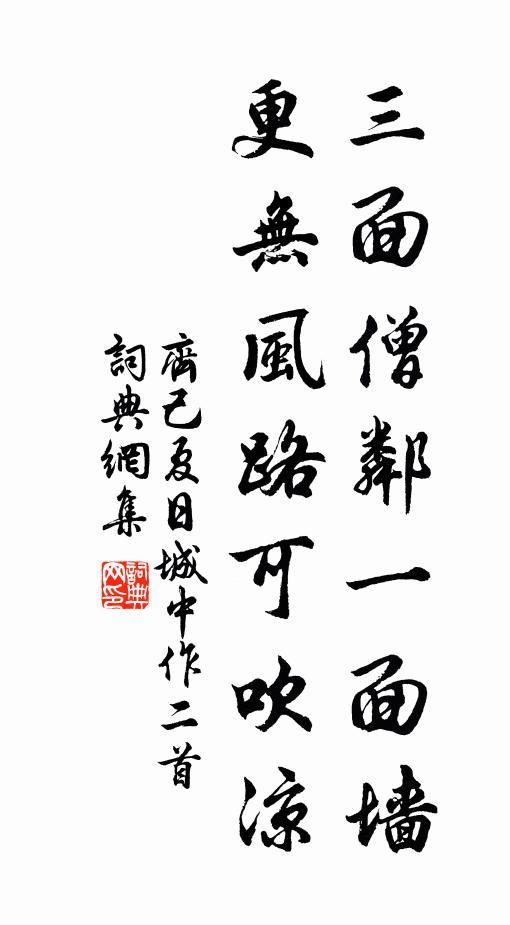 三面僧鄰一面墻
更無風路可吹涼
齊己夏日城中作二首
詞典網集
詞典網印